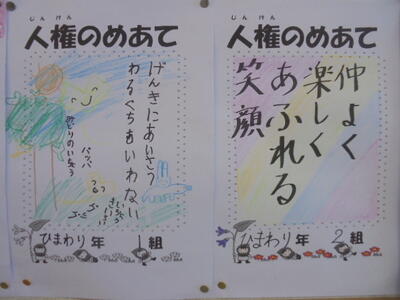 じんけん
人権のめあて
げんきにあいさつ
わるぐちをいわない
ひまわり年 1組
じんけん
人権のめあて
仲よく
楽しく
あふれる
笑顔
ひまわり年 2組